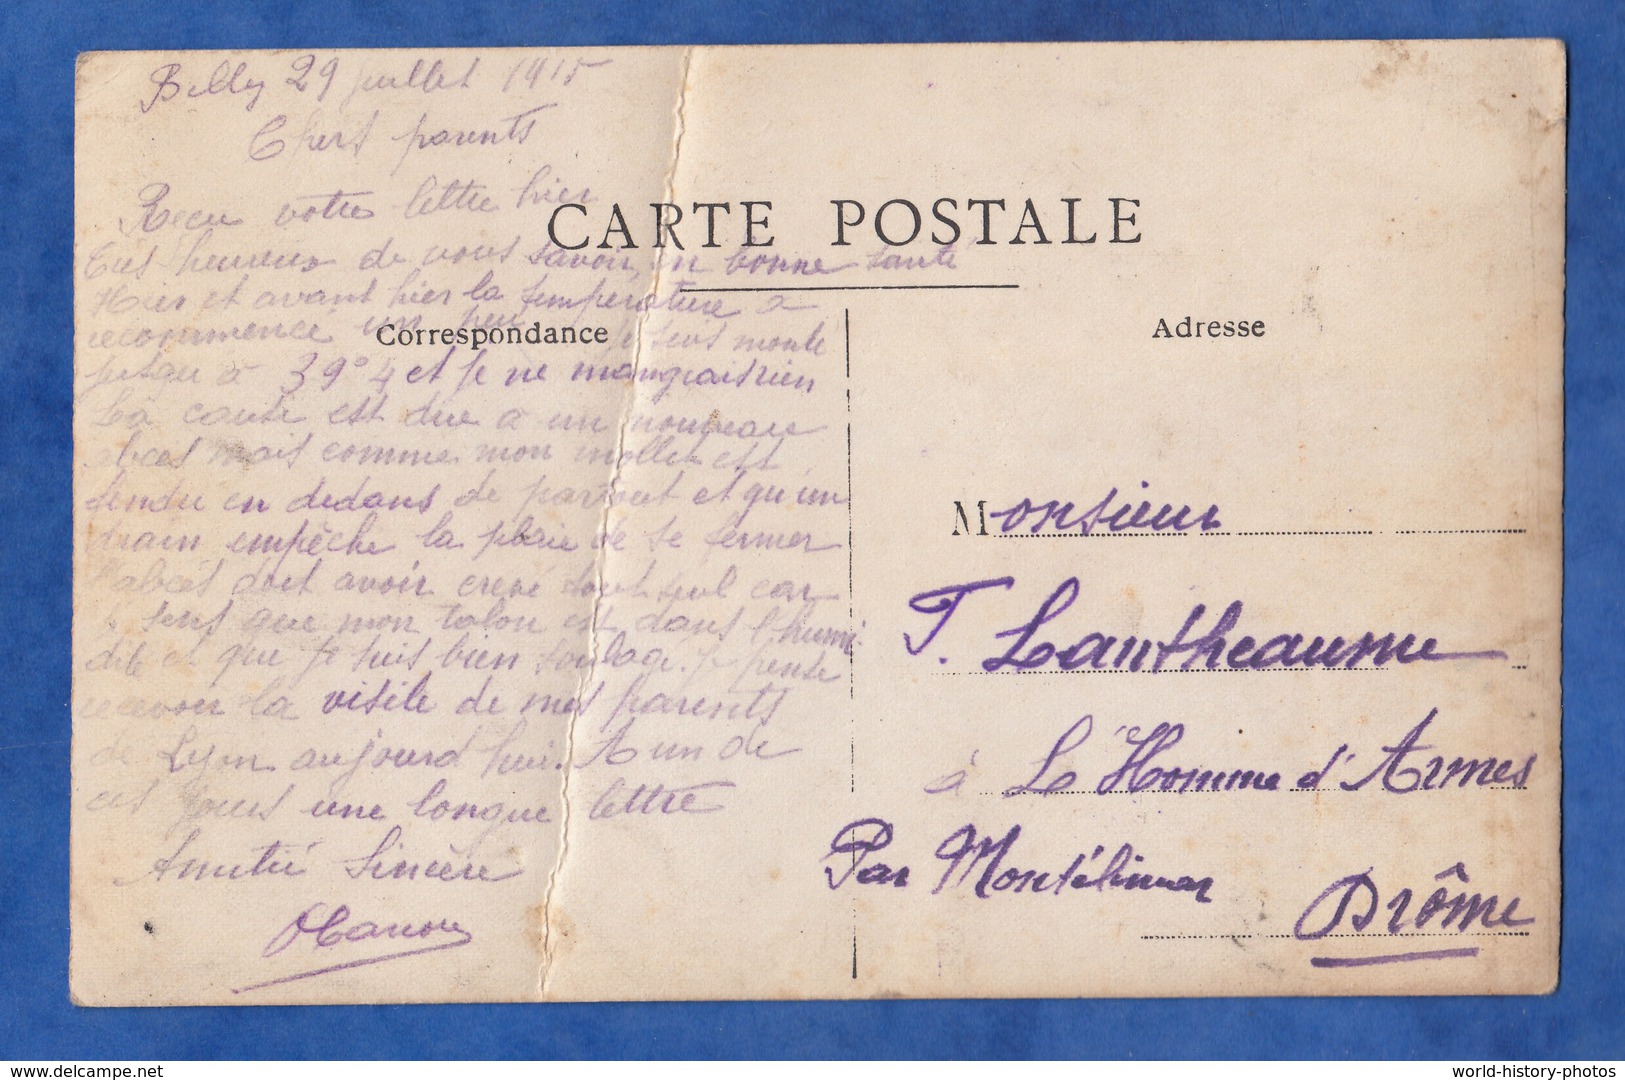 Billy 29 juillet 1915
Chers parents
Reçu votre lettre hier
CARTE POSTALE
Très heureux de vous savoir en bonne santé
Hier et avant hier la température a
recommencé un peu je suis monté
Correspondance
jusqu'à 39°4 et je ne mangeais rien
La cause est due à un nouveau
abcès mais comme mon mollet est
fendu en dedans de partout et qu'un
drain empêche la plaie de se fermer
l'abcès doit avoir crevé tout seul car
je sens que mon talon est dans l'humi-
dité et que je suis bien soulagé. Je pense
recevoir la visite de mes parents
de Lyon aujourd'hui. A un de
ces jours une longue lettre
Amitié Sincère
Adresse
Monsieur
T. Lantheaume
à Le Homme d'Armes
Par Montélimar
Drôme
world-history-photos
www.delcampe.net
world-history-photos